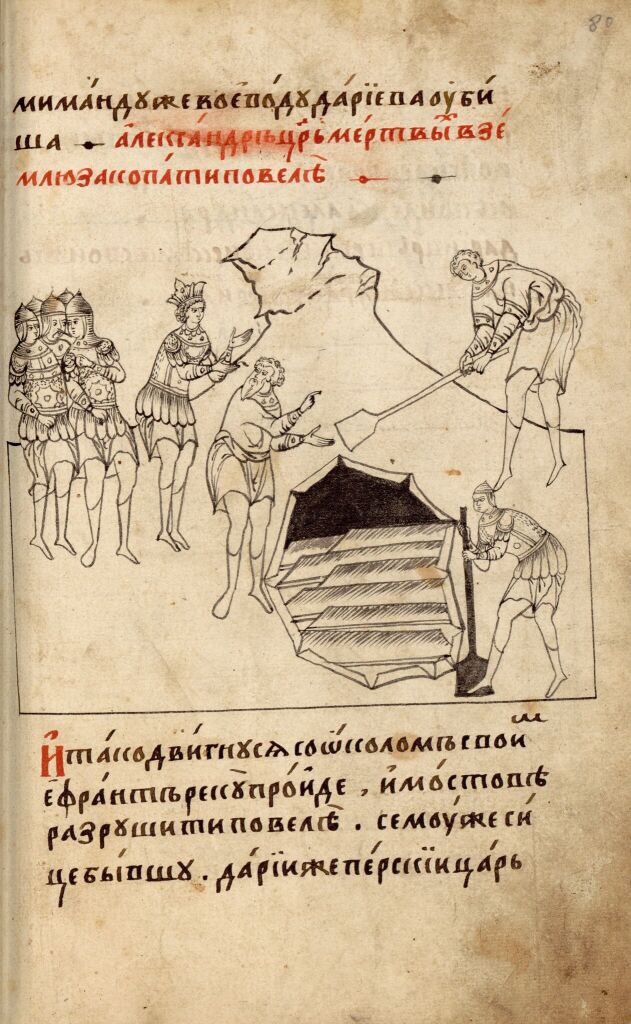 80
мима́ндꙋже воево́дꙋ да́рїева оуби́
ша • але́ѯа́ндръ цр҃ь ме́ртвыѧ в зе́
млю закопа́ти повелѣ
И҆ та́ко дви́гнꙋсѧ со ѿ коломъ свои м
ефра́нтъ рекꙋ̀ про́йде , и҆ мо́стове
разрꙋши́ти повелѣ . семоу́же си́
це бы́вшꙋ . да́рїи же пе́рскїи ца́рь